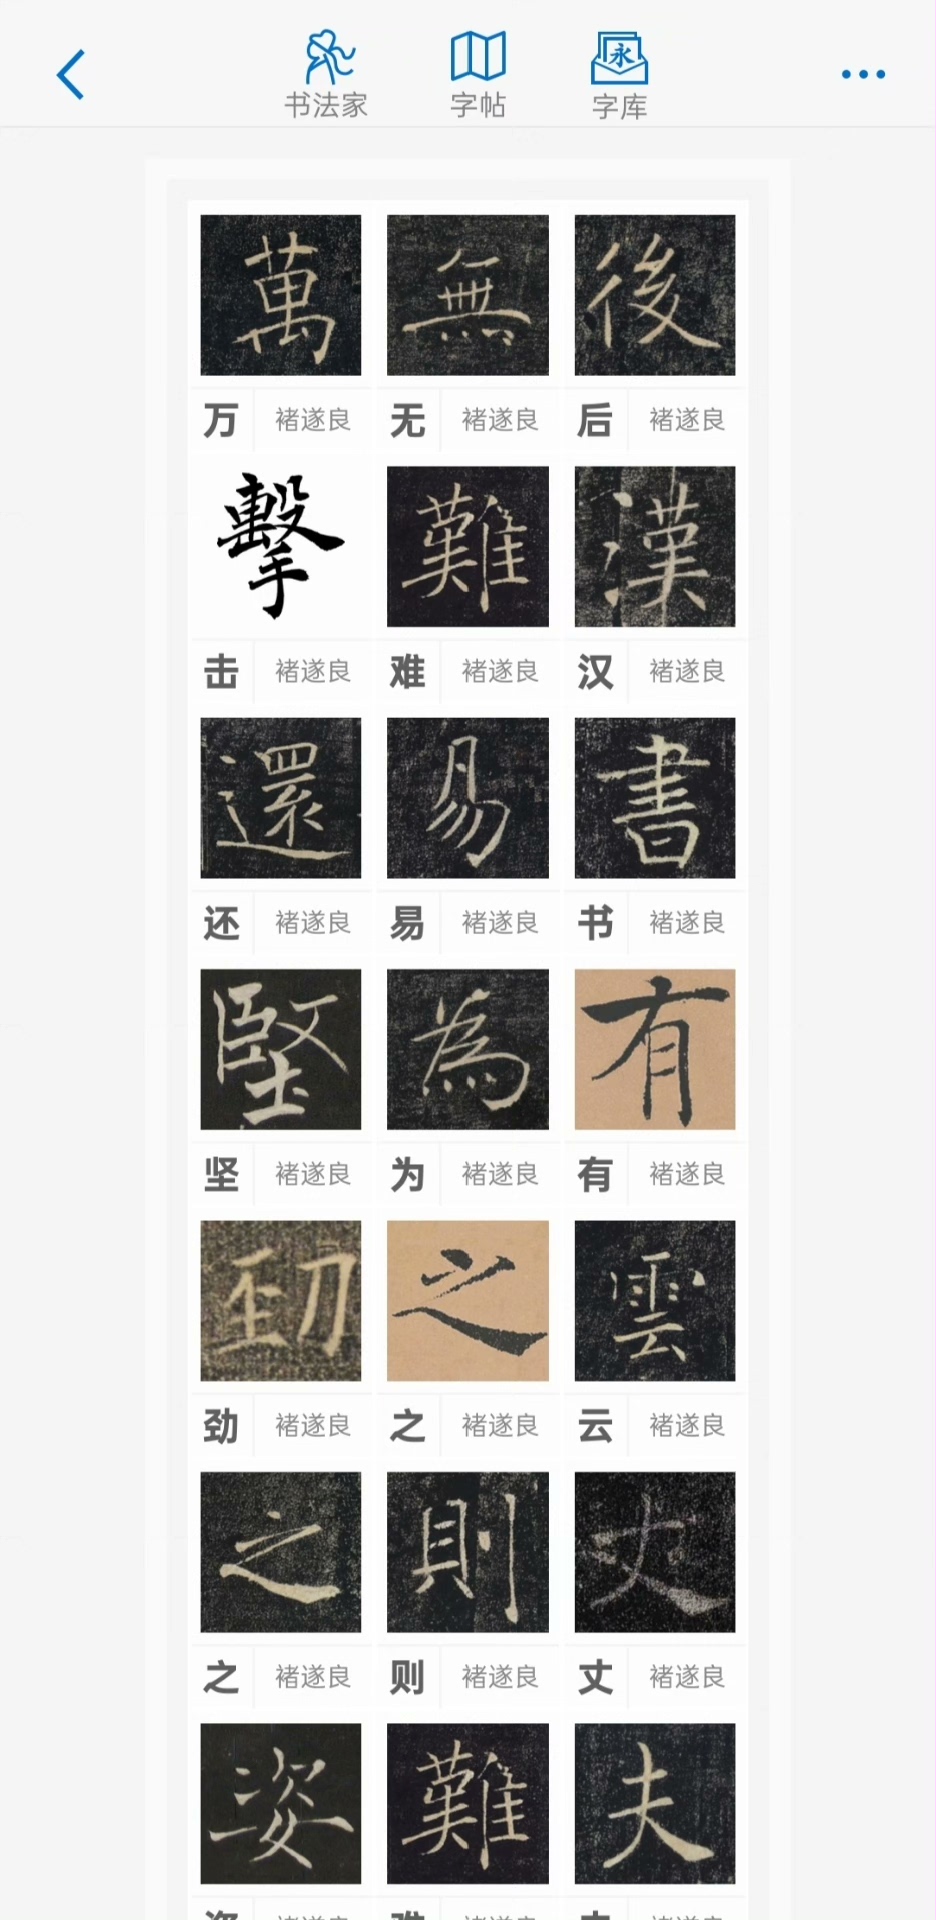 书法家 字帖 永 字库
萬 無 後
万 褚遂良 无 褚遂良 后 褚遂良
擊 難 漢
击 褚遂良 难 褚遂良 汉 褚遂良
還 易 書
还 褚遂良 易 褚遂良 书 褚遂良
堅 為 有
坚 褚遂良 为 褚遂良 有 褚遂良
勁 之 雲
劲 褚遂良 之 褚遂良 云 褚遂良
之 則 丈
之 褚遂良 则 褚遂良 丈 褚遂良
姿 難 夫